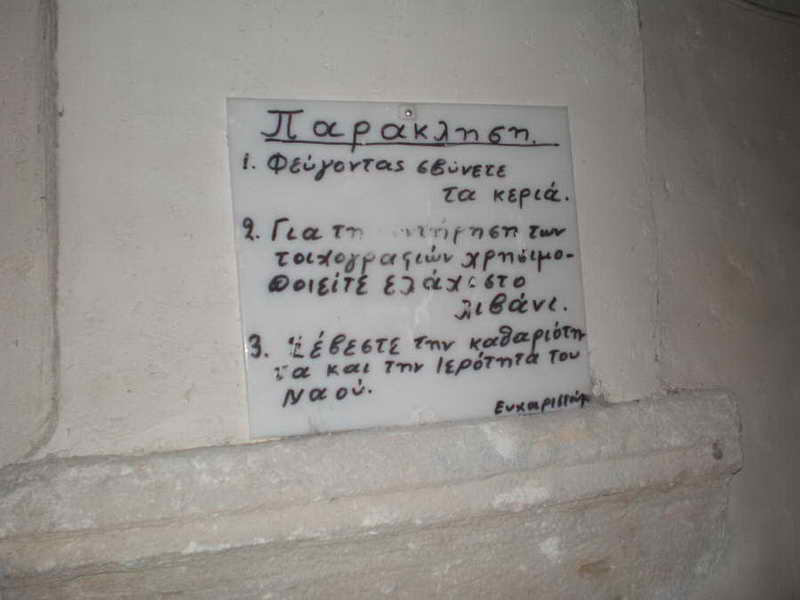 Παρακληση.
1. Φεύγοντας σβύνετε
τα κεριά.
2. Για τη συντήρηση των
τοιχογραφιών χρησιμο-
ποιείτε ελάχιστο
λιβάνι.
3. Σέβεστε την καθαριότη
τα και την Ιερότητα του
Ναού.
Ευχαριστώ